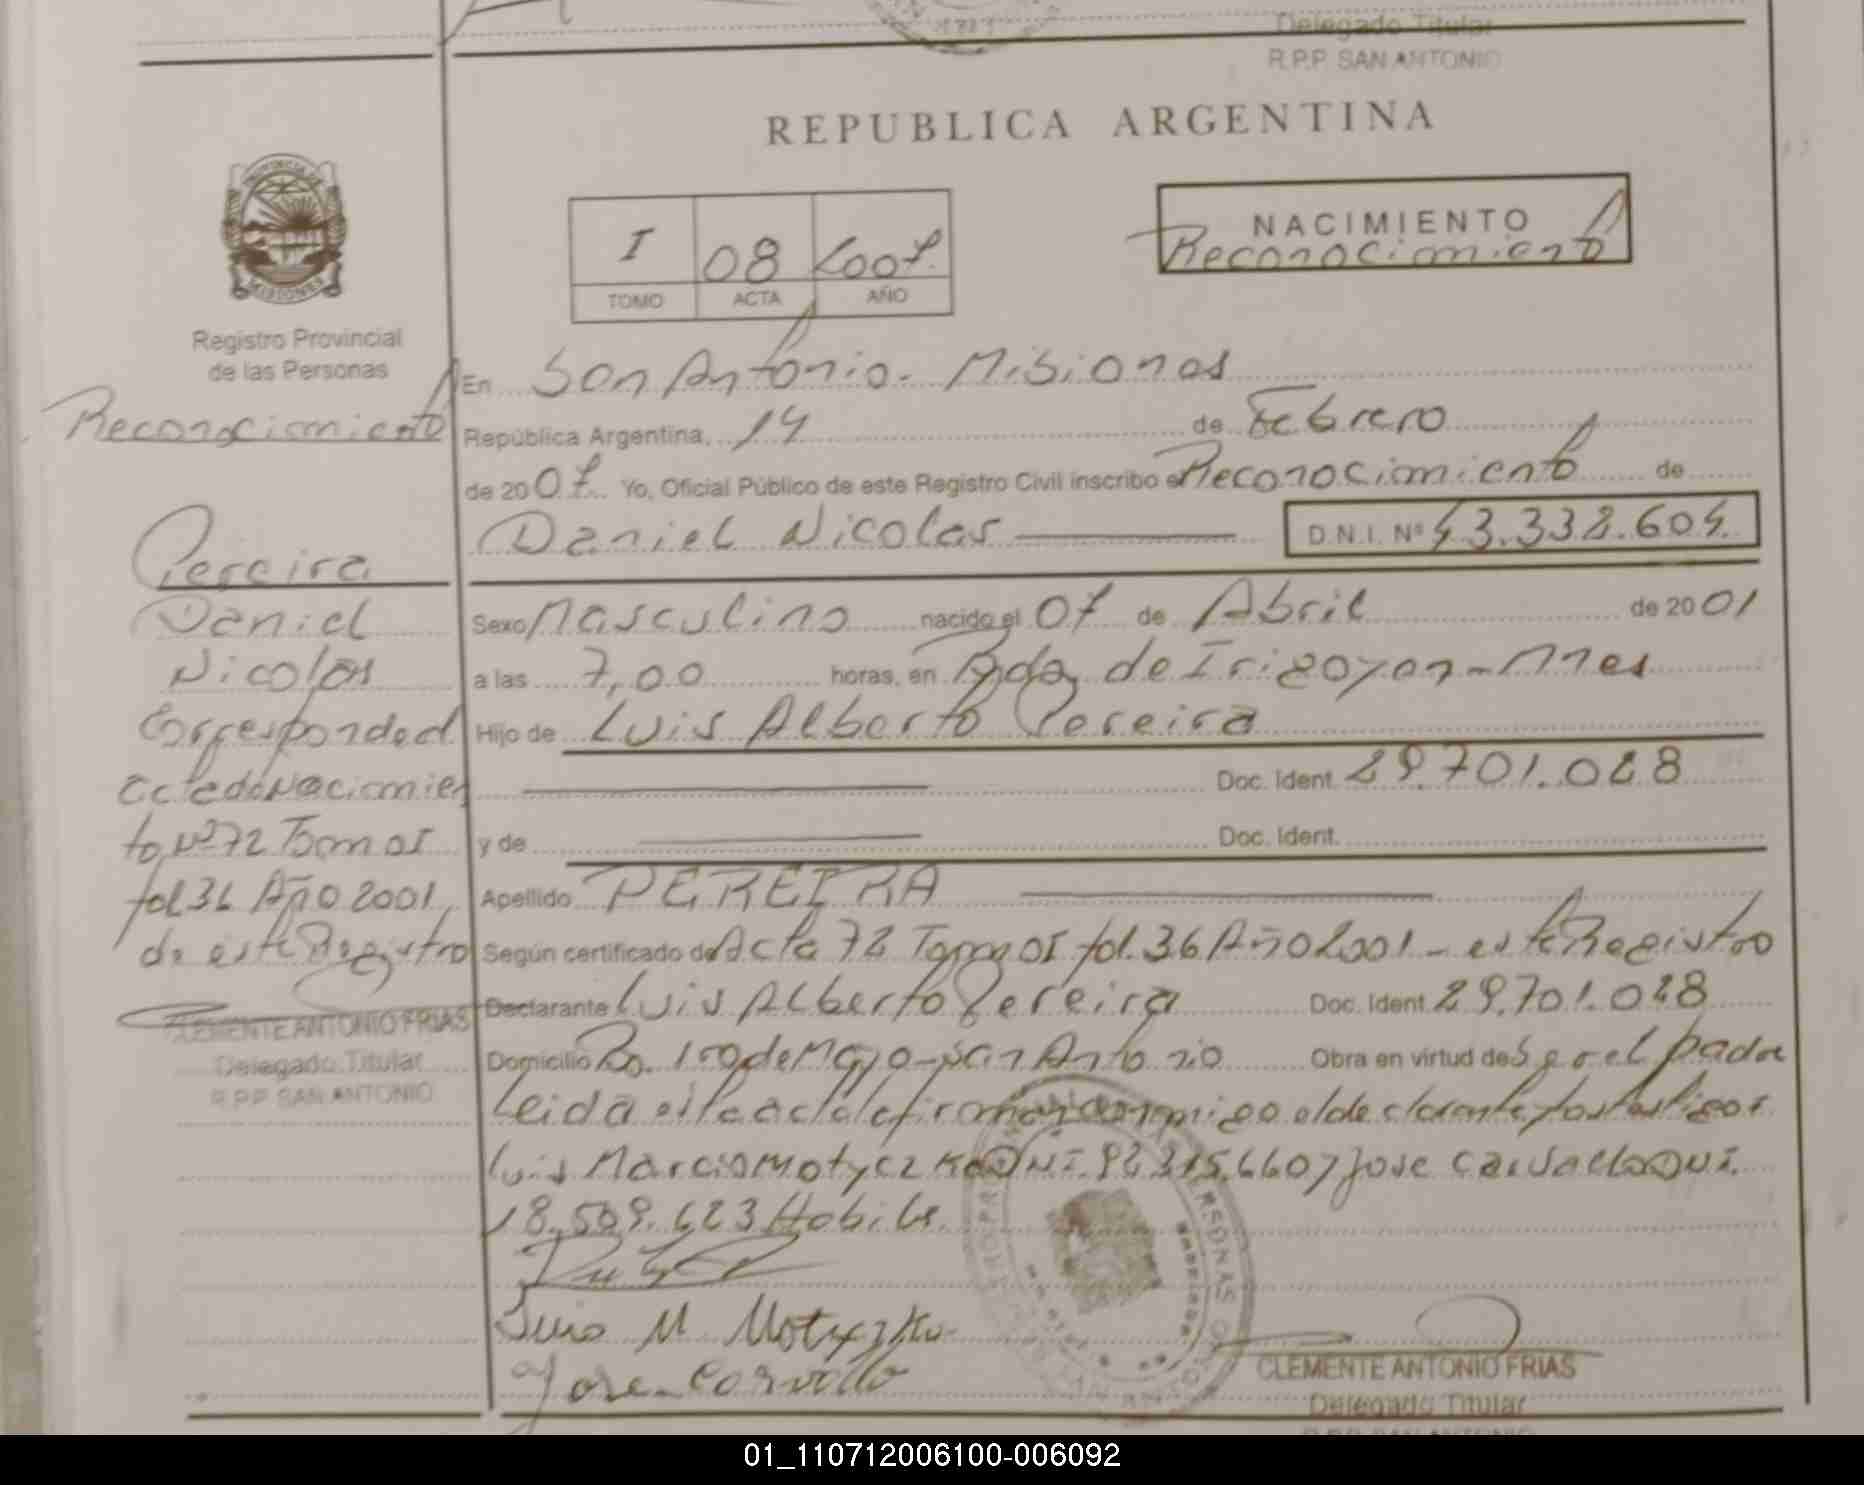 Delegado Titular
R.P.P. SAN ANTONIO
REPUBLICA ARGENTINA
PROVINCIA DE
MISIONES
Registro Provincial
de las Personas
I 08 2007
TOMO ACTA AÑO
NACIMIENTO
Reconocimiento
Reconocimiento
Pereira
Daniel
Nicolas
Corresponde al
acta de Nacimien
to Nº 72 Tomo I
fol 36 Año 2001,
de este Registro
CLEMENTE ANTONIO FRIAS
Delegado Titular
R.P.P. SAN ANTONIO
En San Antonio - Misiones
República Argentina, 14 de Febrero
de 2007 Yo, Oficial Público de este Registro Civil inscribo el Reconocimiento de
Daniel Nicolas D.N.I. Nº 43.338.604
Sexo Masculino nacido el 07 de Abril de 2001
a las 7,00 horas, en Bdo. de Irigoyen - Mnes
Hijo de Luis Alberto Pereira
Doc. Ident. 29.701.028
y de Doc. Ident.
Apellido PEREIRA
Según certificado de Acta 72 Tomo I fol. 36 Año 2001 - este Registro
Declarante Luis Alberto Pereira Doc. Ident. 29.701.028
Domicilio Bo. 1ro de Mayo - San Antonio Obra en virtud de Ser el padre
Leida esta acta la firman conmigo el declarante y los testigos
Luis Marcio Motyczka DNI. 92.315.660 y Jose Carvallo DNI.
18.509.623 Habiles
Luis M. Motyczka
Jose Carvallo
CLEMENTE ANTONIO FRIAS
Delegado Titular
R.P.P. SAN ANTONIO
01_110712006100-006092